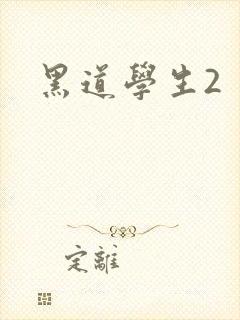 黑道學生2
定離